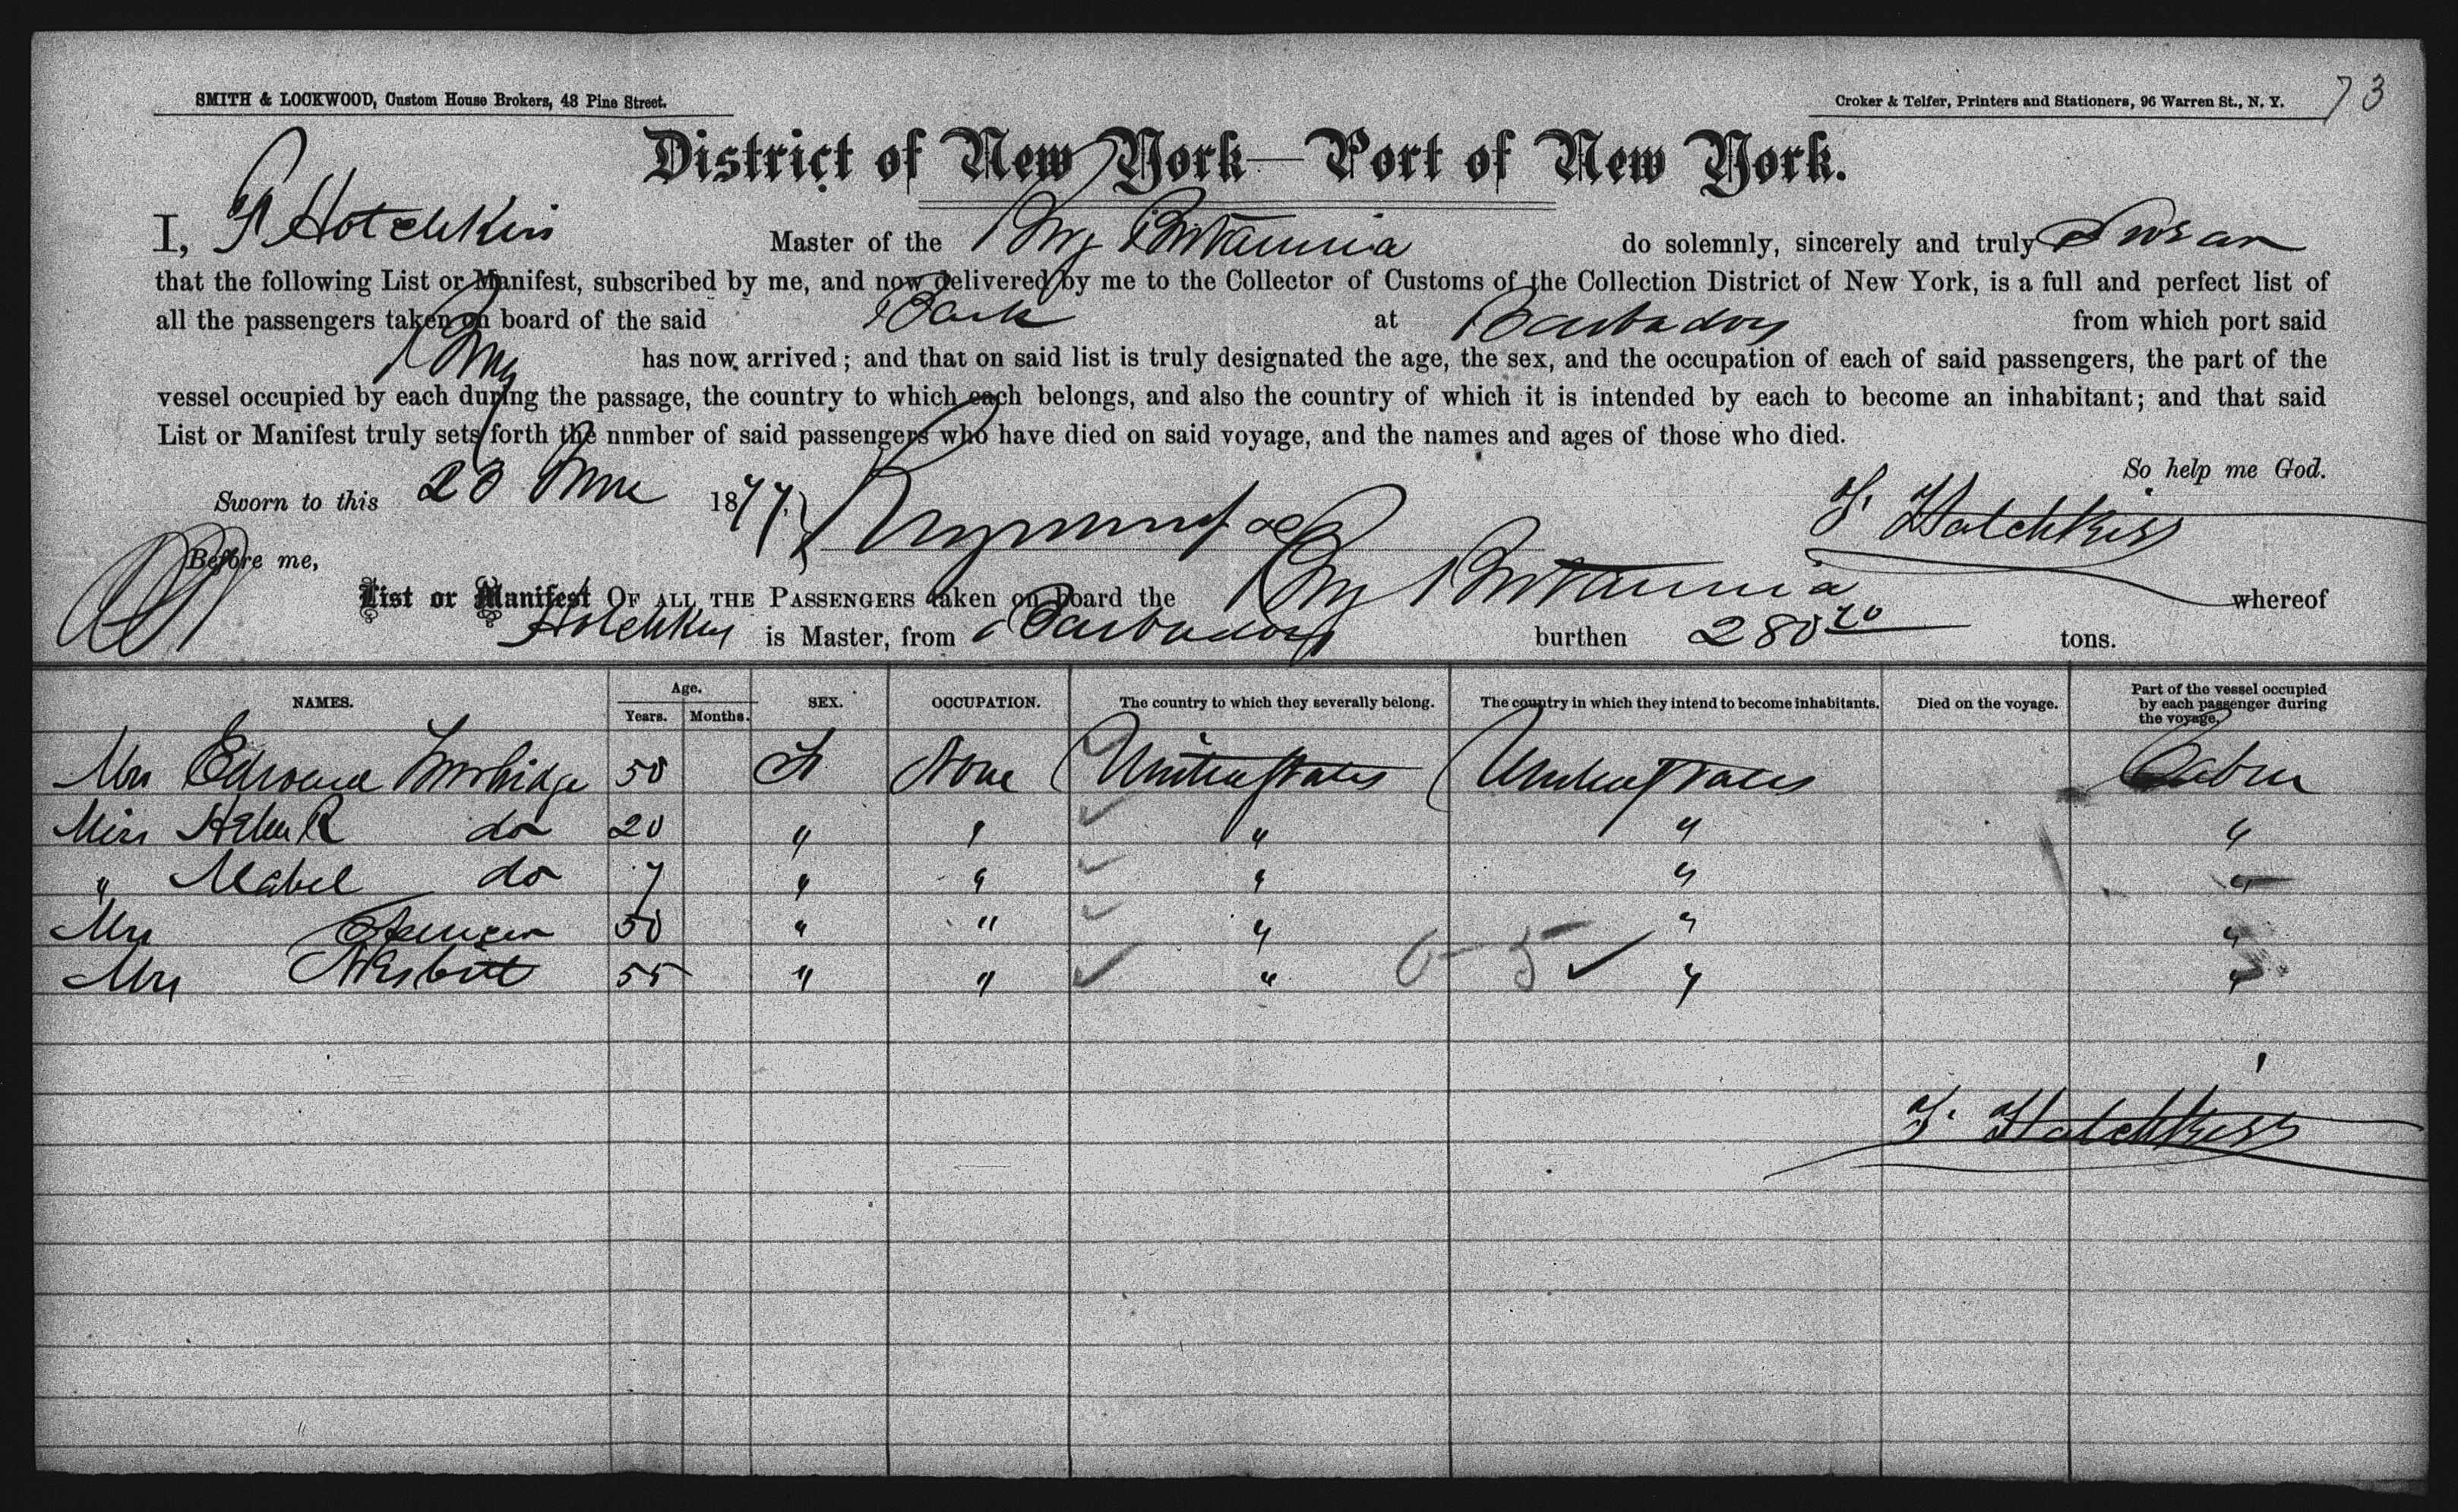 SMITH & LOCKWOOD, Custom House Brokers, 48 Pine Street.
Croker & Telfer, Printers and Stationers, 96 Warren St., N. Y.
73
District of New York—Port of New York.
I, F Hotchkiss Master of the Brig Britannia do solemnly, sincerely and truly Swear
that the following List or Manifest, subscribed by me, and now delivered by me to the Collector of Customs of the Collection District of New York, is a full and perfect list of
all the passengers taken on board of the said Bark at Barbados from which port said
Brig has now arrived; and that on said list is truly designated the age, the sex, and the occupation of each of said passengers, the part of the
vessel occupied by each during the passage, the country to which each belongs, and also the country of which it is intended by each to become an inhabitant; and that said
List or Manifest truly sets forth the nnmber of said passengers who have died on said voyage, and the names and ages of those who died.
So help me God.
Sworn to this 23 June 1877.
F. Hotchkiss
Before me,
List or Manifest OF ALL THE PASSENGERS taken on board the Brig Britannia whereof
Hotchkiss is Master, from Barbados burthen 280 20 tons.
NAMES. Age. Years. Months. SEX. OCCUPATION. The country to which they severally belong. The country in which they intend to become inhabitants. Died on the voyage. Part of the vessel occupied by each passenger during the voyage.
Mrs Edward 50 F None United States United States Cabin
Miss Helen R do 20 " " " " "
" Mabel do 7 " " " " "
Mrs Spencer 50 " " " " "
Mrs Nesbitt 55 " " " " "
5
F. Hotchkiss